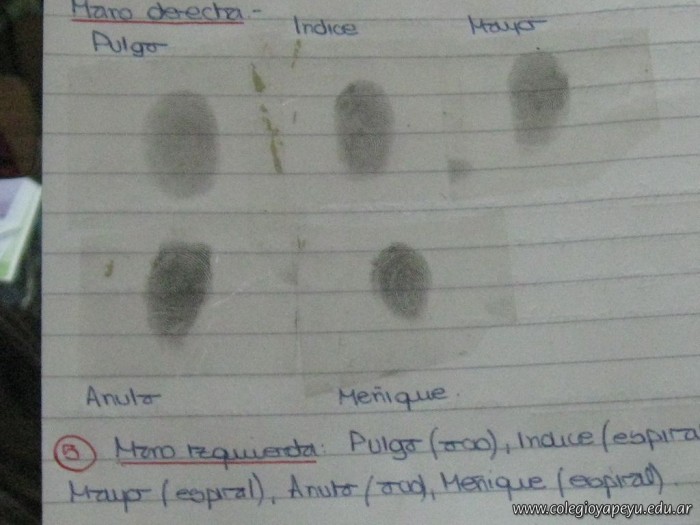 Mano derecha.-
Pulgar
Indice
Mayor
Anular
Meñique.
B Mano izquierda: Pulgar (arco), Indice (espiral
Mayor (espiral), Anular (arco), Meñique (espiral)
www.colegioyapeyu.edu.ar